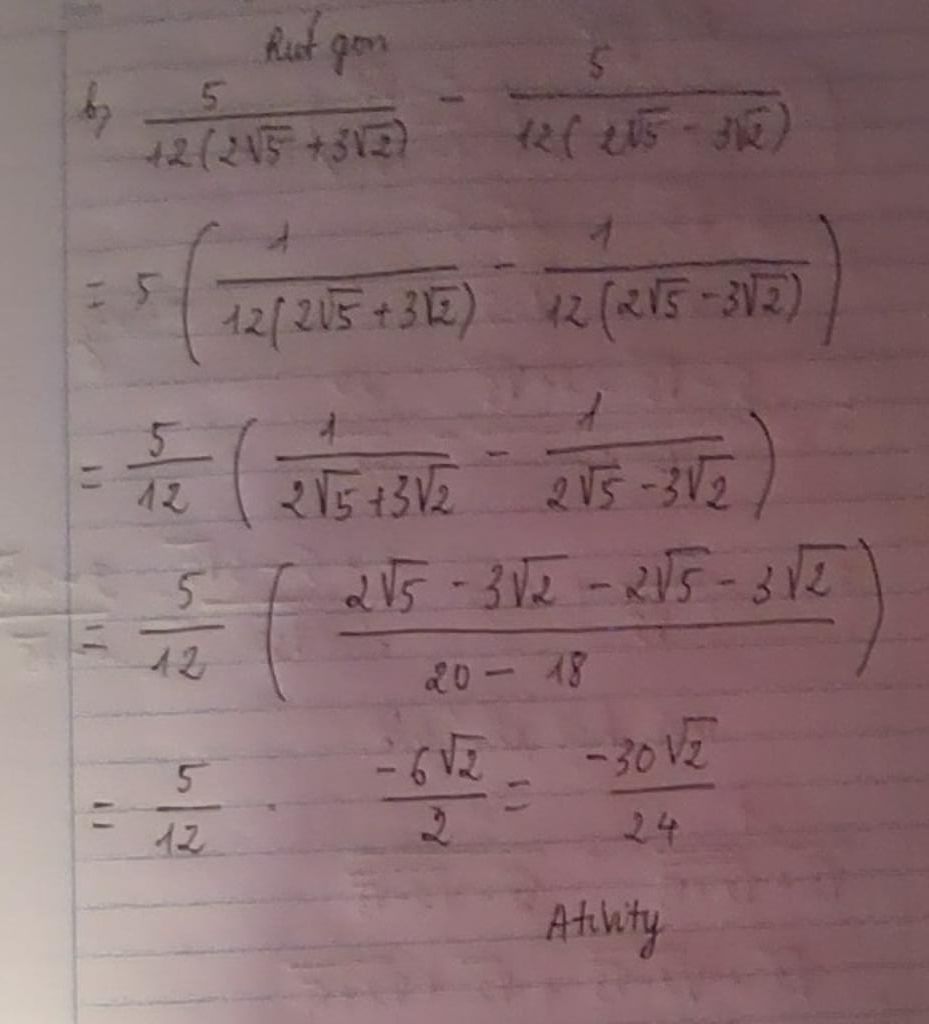 Rút gọn
b) 5/12(2√5 + 3√2) - 5/12(2√5 - 3√2)
= 5 (1/12(2√5 + 3√2) - 1/12(2√5 - 3√2))
= 5/12 (1/2√5 + 3√2 - 1/2√5 - 3√2)
= 5/12 (2√5 - 3√2 - 2√5 - 3√2/20 - 18)
= 5/12 . -6√2/2 = -30√2/24